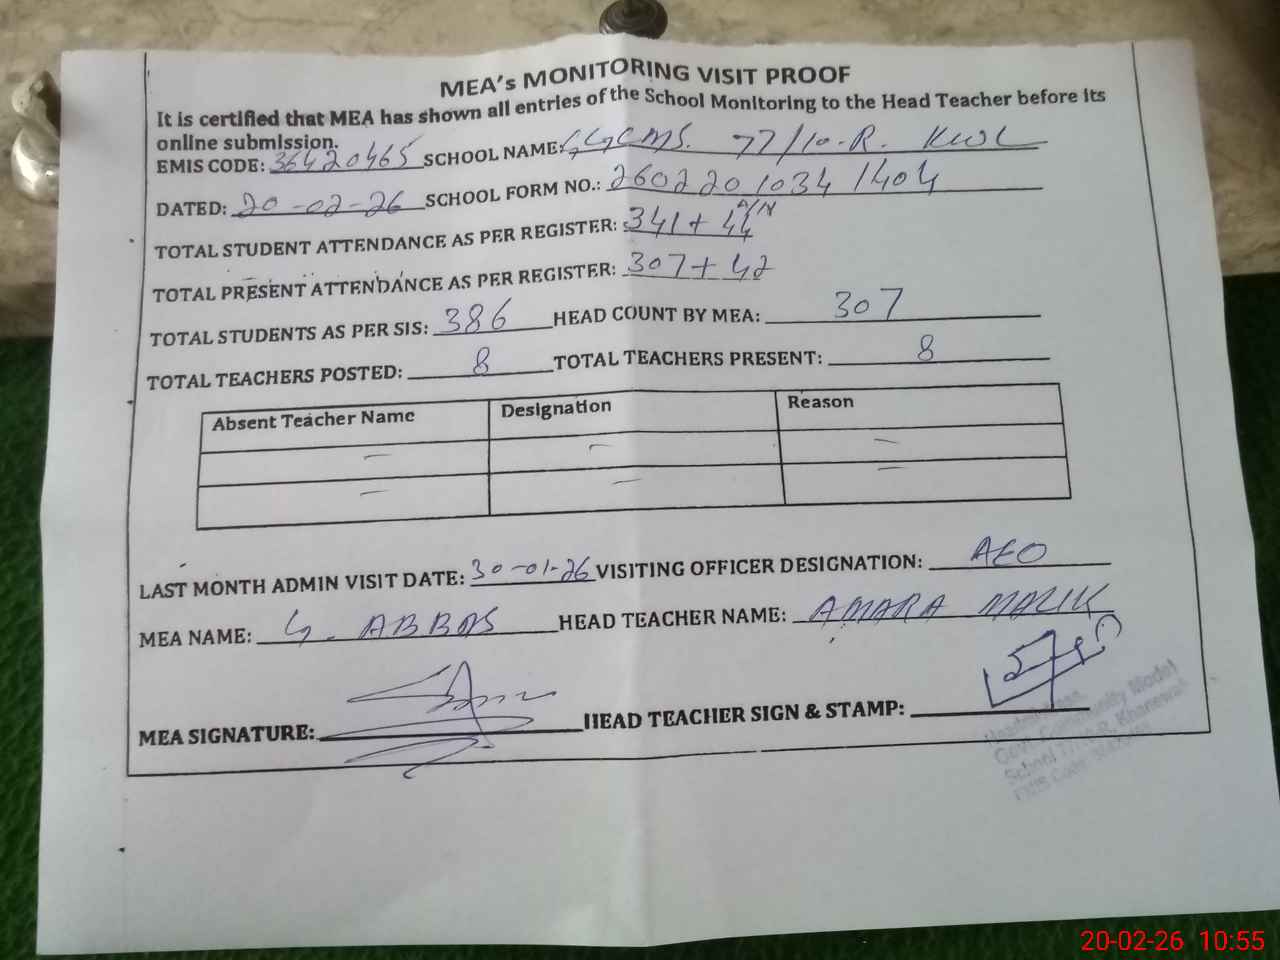 MEA's MONITORING VISIT PROOF
It is certified that MEA has shown all entries of the School Monitoring to the Head Teacher before its
online submission.
EMIS CODE: 36420465 SCHOOL NAME: GGCMS. 77/10-R. KWL
DATED: 20-02-26 SCHOOL FORM NO.: 2602201034 1404
A/N
TOTAL STUDENT ATTENDANCE AS PER REGISTER: 341+44
TOTAL PRESENT ATTENDANCE AS PER REGISTER: 307+42
TOTAL STUDENTS AS PER SIS: 386 HEAD COUNT BY MEA: 307
TOTAL TEACHERS POSTED: 8 TOTAL TEACHERS PRESENT: 8
Absent Teacher Name Designation Reason
– – –
– – –
LAST MONTH ADMIN VISIT DATE: 30-01-26 VISITING OFFICER DESIGNATION: AEO
MEA NAME: G. ABBAS HEAD TEACHER NAME: AMARA MALIK
MEA SIGNATURE: HEAD TEACHER SIGN & STAMP:
Headmistress
Govt. Community Model
School 77/10-R, Khanewal
EMIS Code
20-02-26 10:55